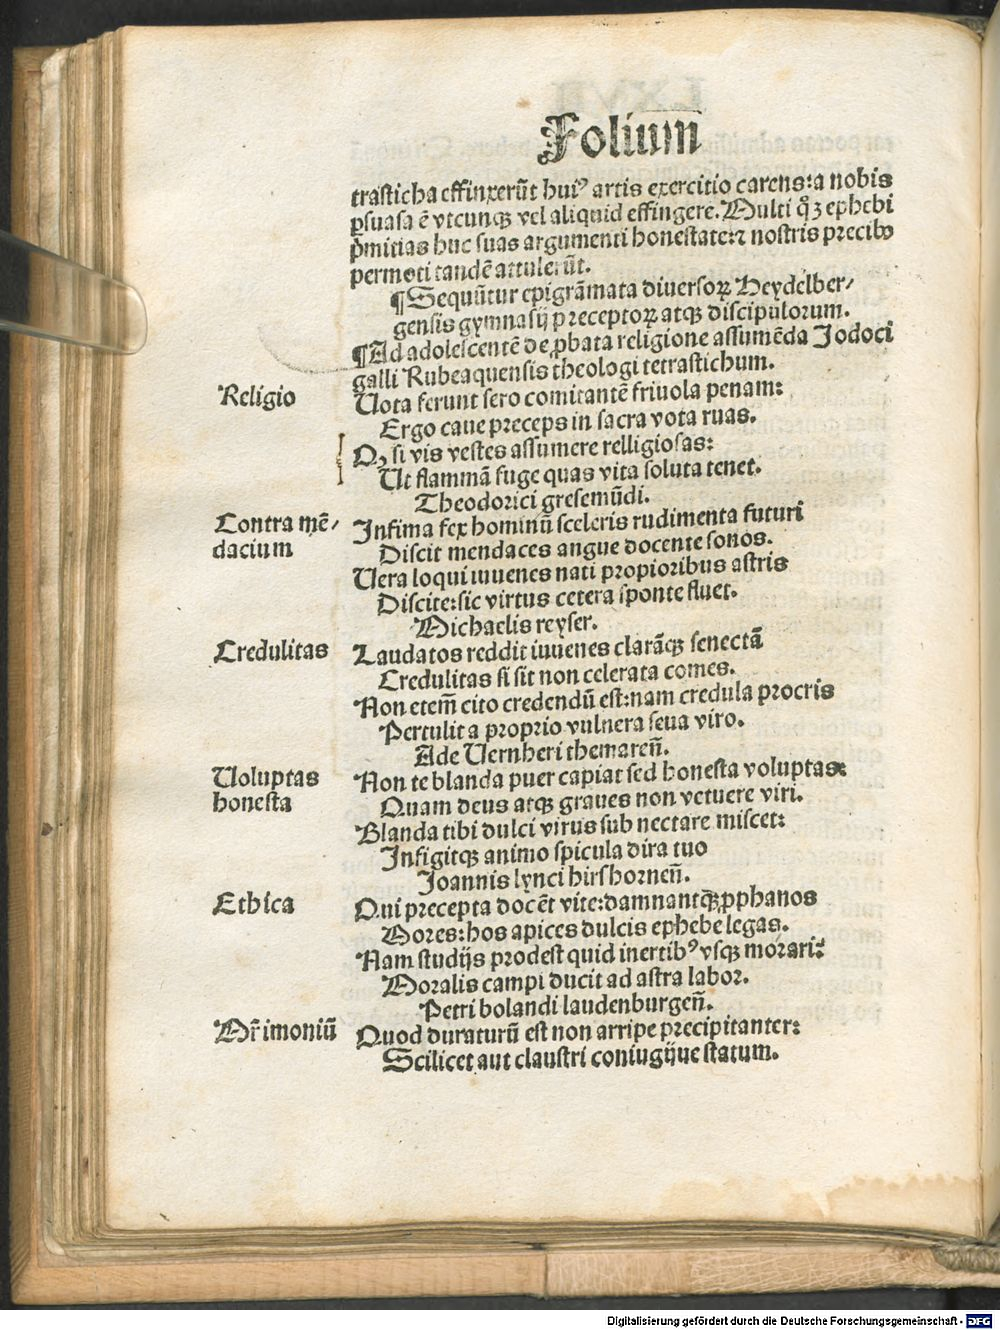 Folium
trasticha effinxerūt huiꝰ artis exercitio carens: a nobis
ꝑsuasa ē vtcunqꝫ vel aliquid effingere. Multi qͦꝫ ephebi
p̄mitias huc suas argumenti honestate: ⁊ nostris precibꝰ
permoti tandē attulerūt.
¶ Sequūtur epigrāmata diuersoꝝ Heydelber/
gensis gymnasij preceptoꝝ atqꝫ discipulorum.
¶ Ad adolescentē de ꝓbata religione assumēda Jodoci
galli Rubeaquensis theologi tetrastichum.
Religio
Uota ferunt sero comitantē friuola penam:
Ergo caue preceps in sacra vota ruas.
Q, si vis vestes assumere relligiosas:
Ut flammā fuge quas vita soluta tenet.
Theodorici gresemūdi.
Contra mē/
dacium
Infima fex hominū sceleris rudimenta futuri
Discit mendaces angue docente sonos.
Uera loqui iuuenes nati propioribus astris
Discite: sic virtus cetera sponte fluet.
Michaelis reyser.
Credulitas
Laudatos reddit iuuenes clarāqꝫ senectā
Credulitas si sit non celerata comes.
Non etem̄ cito credendū est: nam credula procris
Pertulit a proprio vulnera seua viro.
Ade Uernheri themaren̄.
Uoluptas
honesta
Non te blanda puer capiat sed honesta voluptas:
Quam deus atqꝫ graues non vetuere viri.
Blanda tibi dulci virus sub nectare miscet:
Infigitqꝫ animo spicula dira tuo
Joannis lynci hirshornen̄.
Ethica
Qui precepta docēt vite: damnantqꝫ ꝓphanos
Mores: hos apices dulcis ephebe legas.
Nam studijs prodest quid inertibꝰ vsqꝫ morari:
Moralis campi ducit ad astra labor.
Petri bolandi laudenburgen̄.
Mr̄imoniū
Quod duraturū est non arripe precipitanter:
Scilicet aut claustri coniugijue statum.
Digitalisierung gefördert durch die Deutsche Forschungsgemeinschaft - DFG